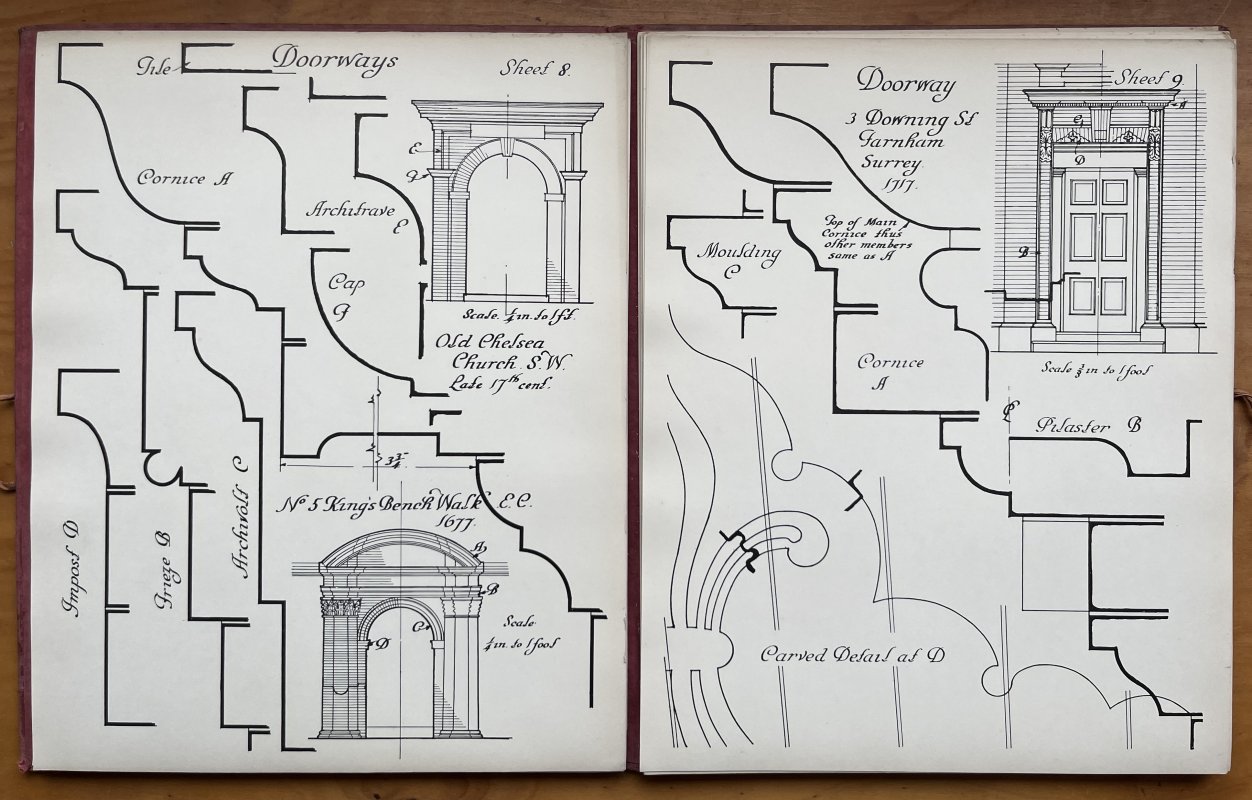 Tile
Doorways
Sheet 8.
Cornice A
Architrave
E
E
F
Cap
F
Scale. ¼ in. to 1 ft.
Old Chelsea
Church. S.W.
Late 17th cent.
3¾"
No 5 King's Bench Walk E.C.
1677.
Impost D
Frieze B
Archivolt C
A
B
C
D
Scale
¼ in. to 1 foot
Doorway
Sheet 9
3 Downing St
Farnham
Surrey
1717.
A
e
D
B
Top of Main
Cornice thus
other members
same as A
Moulding
C
Cornice
A
Scale ⅜ in to 1 foot
Pilaster B
Carved Detail at D